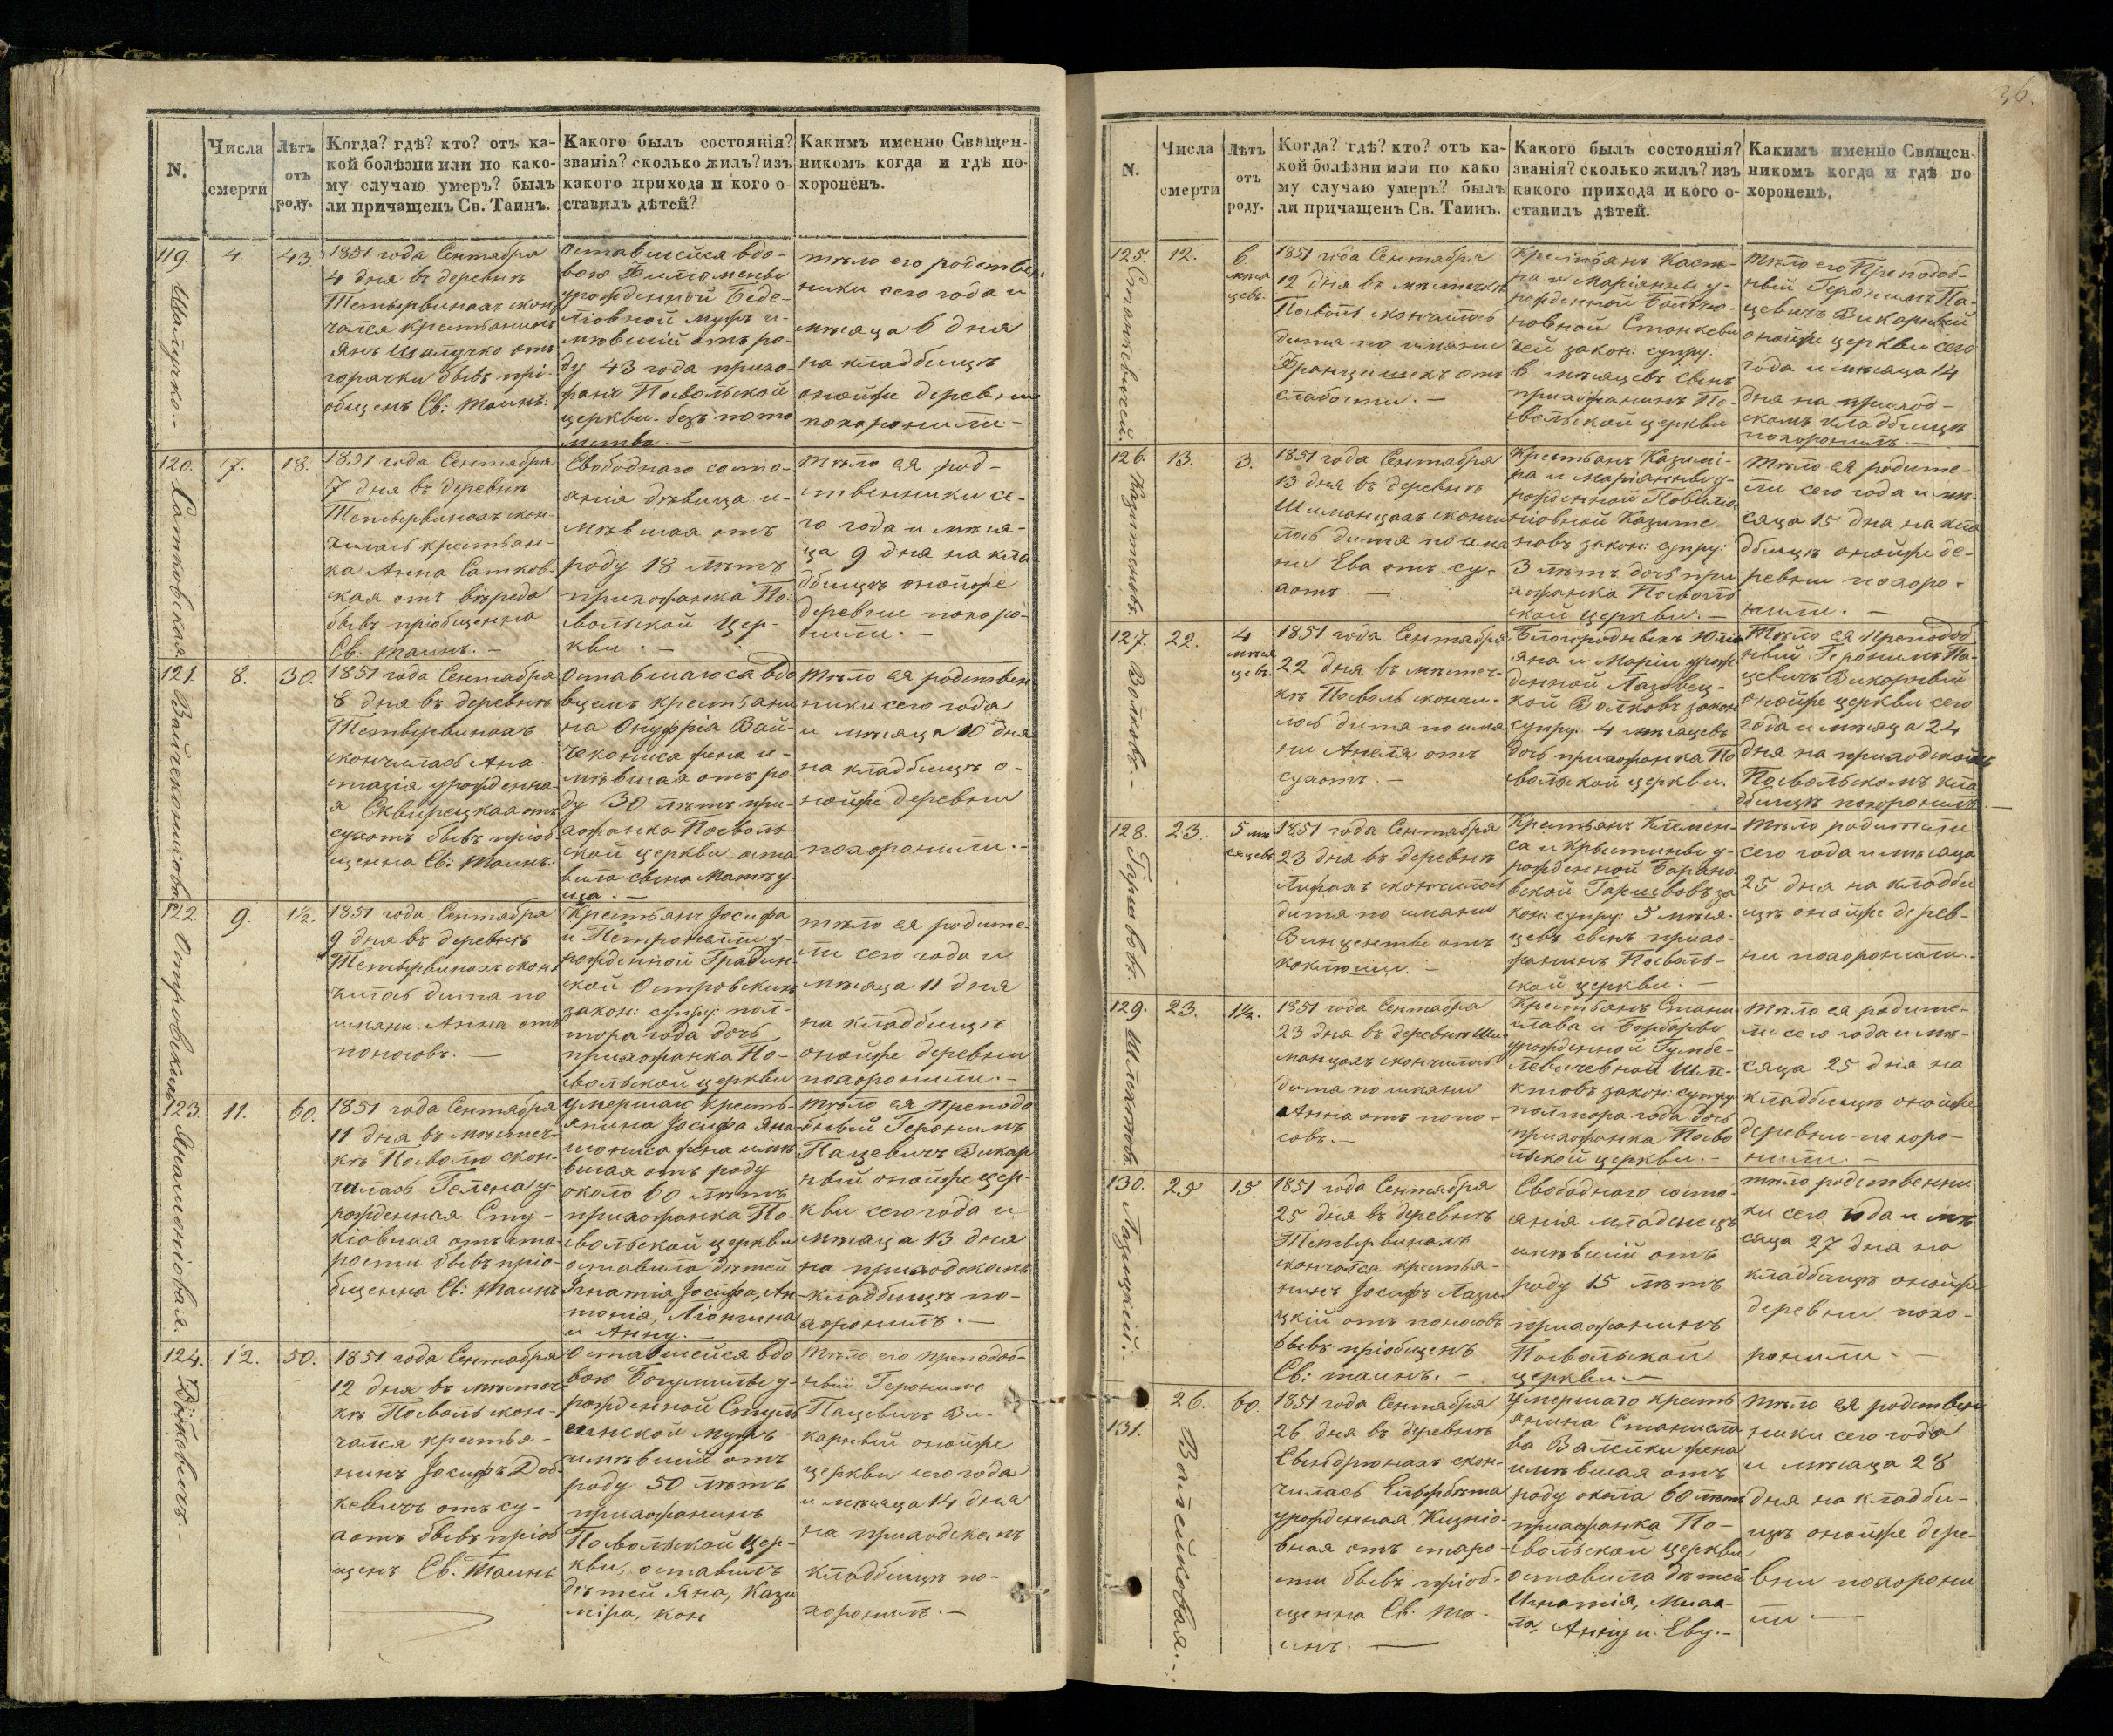 36.
N.
Числа
смерти
Лѣтъ
отъ
роду.
Когда? гдѣ? кто? отъ ка-
кой болѣзни или по како-
му случаю умеръ? былъ
ли причащенъ Св. Таинъ.
Какого былъ состоянія?
званія? сколько жилъ? изъ
какого прихода и кого о-
ставилъ дѣтей?
Какимъ именно Священ-
никомъ когда и гдѣ по-
хороненъ.
119.
4.
43.
1851 года Сентября
4 дня въ деревнѣ
скон
чался крестьянинъ
Янъ отъ
горячки бывъ прі-
общенъ Св: Таинъ:
Оставшейся вдо-
вою
урожденной Беде-
ліовной мужъ и-
мѣвшій отъ ро-
ду 43 года прихо-
жанъ Посвольской
церкви. безъ пото
мства —
тѣло его родствен
ники сего года и
мѣсяца 6 дня
на кладбищѣ
онойже деревни
похоронили —
120.
7.
18.
Сатковская
1851 года Сентября
7 дня въ деревнѣ
скон-
чилась крестьян-
ка Анна Сатков-
ская отъ вереда
бывъ пріобщенна
Св: таинъ. —
Свободнаго состо-
янія дѣвица и-
мѣвшая отъ
роду 18 лѣтъ
прихожанка По-
свольской Цер-
кви. —
тѣло ея род-
ственники се-
го года и мѣся-
ца 9 дня на кла
дбищѣ онойже
деревни похоро-
нили. —
121.
8.
30.
1851 года Сентября
8 дня въ деревнѣ
скончилась Ана-
стазія урожденна-
я Сквирецкая отъ
сухотъ бывъ пріоб
щенна Св: Таинъ:
вдо
вцемъ крестьяни
на Онуфрія Вай-
чекониса жена и-
мѣвшая отъ ро-
ду 30 лѣтъ при-
хожанка Посволь
ской церкви оста
вила сына
тѣло ея родствен
ники сего года
и мѣсяца 10 дня
на кладбищѣ о-
нойже деревни
похоронили. —
122.
9.
1½.
Островскихъ
1851 года Сентября
9 дня въ деревнѣ
скон
чилась дитя по
имяни Анна отъ
поносовъ. —
Крестьянъ Іосифа
и Петронелли у-
рожденной Градин-
ской Островскихъ
закон: супру: пол-
тора года дочь
прихожанка По-
свольской церкви
тѣло ея родите-
ли сего года и
мѣсяца 11 дня
на кладбищѣ
онойже деревни
похоронили. —
123.
11.
60.
1851 года Сентября
11 дня въ мѣстеч-
кѣ Посволю скон-
чилась Гелена у-
рожденная Сту-
кіовная отъ ста-
рости бывъ пріо-
бщенна Св: Таинъ
умершаго кресть-
янина Іосифа Яна-
мониса жена имѣ
вшая отъ роду
около 60 лѣтъ
прихожанка По-
свольской церкви
оставила дѣтей
Игнатія, Іосифа, Ан-
тонія, Ліонгина
и Анну. —
тѣло ея Преподо
бный Геронимъ
Пацевичъ Викар
ный онойже цер-
кви сего года и
мѣсяца 13 дня
на приходскомъ
кладбищѣ по-
хоронилъ. —
124.
12.
50.
1851 года Сентября
12 дня въ мѣстеч
кѣ Посволь скон-
чался крестья-
нинъ Іосифъ Дод-
кевичъ отъ су-
хотъ бывъ пріоб
щенъ Св: Таинъ
Оставшейся вдо
вою Богумилы у-
рожденной
мужъ
имѣвшій отъ
роду 50 лѣтъ
прихожанинъ
Посвольской Цер-
кви, оставилъ
дѣтей Яна, Кази
міра,
тѣло его преподоб-
ный Геронимъ
Пацевичъ Ви-
карный онойже
церкви сего года
и мѣсяца 14 дня
на приходскомъ
кладбищѣ по-
хоронилъ. —
N.
Числа
смерти
Лѣтъ
отъ
роду.
Когда? гдѣ? кто? отъ ка-
кой болѣзни или по како
му случаю умеръ? былъ
ли причащенъ Св. Таинъ.
Какого былъ состоянія?
званія? сколько жилъ? изъ
какого прихода и кого о-
ставилъ дѣтей.
Какимъ именно Священ-
никомъ когда и гдѣ по
хороненъ.
125.
12.
6
мѣся
цевъ.
Станкевичей.
1851 года Сентября
12 дня въ мѣстечкѣ
Посволь скончилось
дитя по имяни
Францишекъ отъ
слабости. —
Крестьянъ Касп-
ра и Маріянны у-
рожденной
Станкеви
чей закон: супру:
6 мѣсяцевъ сынъ
прихожанинъ По-
свольской церкви
тѣло его Преподоб-
ный Геронимъ Па-
цевичъ Викарный
онойже церкви сего
года и мѣсяца 14
дня на приход-
скомъ кладбищѣ
похоронилъ —
126.
13.
3.
1851 года Сентября
13 дня въ деревнѣ
Шиманцахъ скончи
лось дитя по имя
ни Ева отъ су-
хотъ. —
Крестьянъ Казими-
ра и Маріянны у-
рожденной
закон: супру:
3 лѣтъ дочь при
хожанка Посволь
ской церкви. —
тѣло ея родите-
ли сего года и мѣ-
сяца 15 дня на кла
дбищѣ онойже де-
ревни похоро-
нили. —
127.
22.
4
мѣся
цевъ.
Волковъ. —
1851 года Сентября
22 дня въ мѣстеч-
кѣ Посволь скончи-
лось дитя по имя
ни Анеля отъ
сухотъ. —
Благородныхъ Юлі
яна и Маріи урож
денной Лазовец-
кой Волковъ закон
супру: 4 мѣсяцевъ
дочь прихожанка По
свольской церкви.
Тѣло ея преподоб
ный Геронимъ Па-
цевичъ Викарный
онойже церкви сего
года и мѣсяца 24
дня на приходском
Посвольскомъ кла
дбищѣ похоронилъ. —
128.
23.
5 мѣ
сяцевъ
1851 года Сентября
23 дня въ деревнѣ
скончилось
дитя по имяни
Винценты отъ
коклюши. —
Крестьянъ Клемен-
са и Крыстины у-
рожденной Барано-
вской за
кон: супру: 5 мѣся-
цевъ сынъ прихо-
жанинъ Посволь-
ской церкви. —
тѣло родители
сего года и мѣсяца
25 дня на кладби
щѣ онойже дерев-
ни похоронили. —
129.
23.
1½.
1851 года Сентября
23 дня въ деревнѣ Ши-
манцахъ скончилось
дитя по имяни
Анна отъ поно-
совъ. —
Крестьянъ Стани-
слава и Барбары
урожденной Гумбе-
левичевной
закон: супру
полтора года дочь
прихожанка Посво
льской церкви. —
тѣло ея родите-
ли сего года и мѣ-
сяца 25 дня на
кладбищѣ онойже
деревни похоро-
нили. —
130.
25.
15.
Лазицкій. —
1851 года Сентября
25 дня въ деревнѣ
скончался крестья-
нинъ Іосифъ Лази
цкій отъ поносовъ
бывъ пріобщенъ
Св: таинъ. —
Свободнаго состо-
янія младенецъ
имѣвшій отъ
роду 15 лѣтъ
прихожанинъ
Посвольской
церкви —
тѣло родственни
ки сего года и мѣ
сяца 27 дня на
кладбищѣ онойже
деревни похо-
ронили. —
131.
26.
60.
Валейковая. —
1851 года Сентября
26 дня въ деревнѣ
скон-
чилась Ельжбета
урожденная
вная отъ старо-
сти бывъ пріоб-
щенна Св: та-
инъ. —
умершаго кресть
янина Станисла
ва Валейки жена
имѣвшая отъ
роду около 60 лѣтъ
прихожанка По-
свольской церкви
оставила дѣтей
Игнатія, Миха-
ла, Анну и Еву. —
тѣло ея родствен
ники сего года
и мѣсяца 28
дня на кладби-
щѣ онойже дере-
вни похорони
ли —